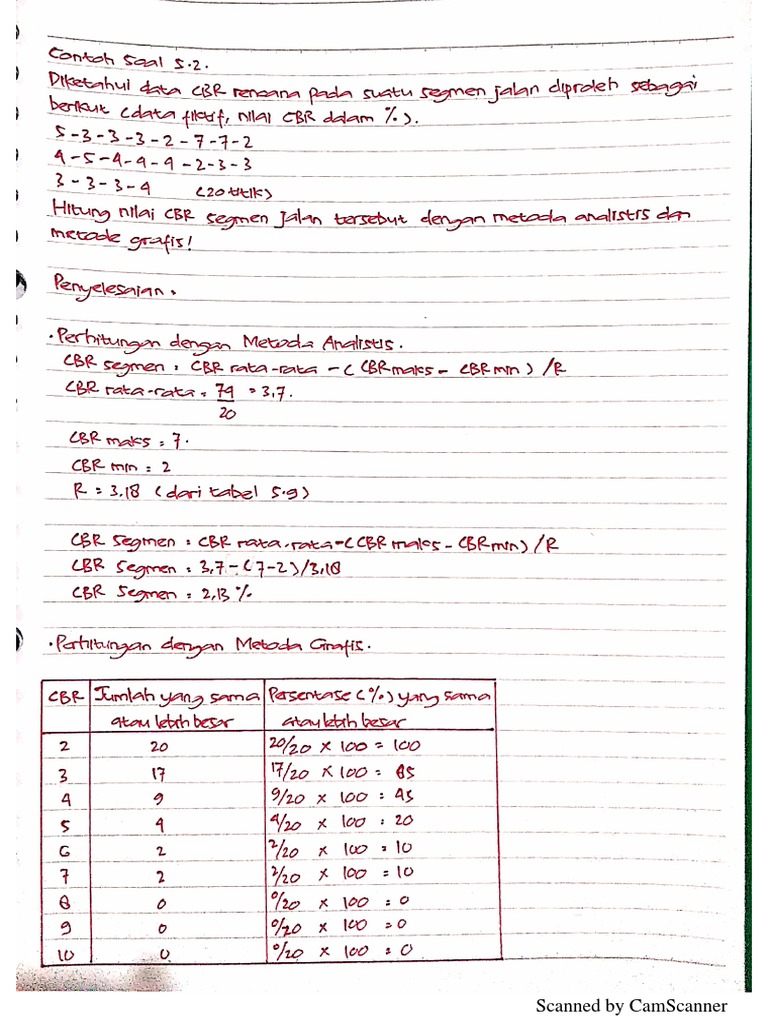 Contoh Soal 5.2.
Diketahui data CBR rencana pada suatu segmen jalan diproleh sebagai
berikut (data fiktif, nilai CBR dalam %).
5-3-3-3-2-7-7-2
4-5-4-4-4-2-3-3
3-3-3-4 (20 titik)
Hitung nilai CBR segmen jalan tersebut dengan metoda analistis dan
metode grafis!
Penyelesaian.
• Perhitungan dengan Metoda Analistis.
CBR segmen : CBR rata-rata - ( CBR maks - CBR min ) /R
CBR rata-rata = 74 = 3,7.
20
CBR maks = 7.
CBR min = 2
R = 3,18 (dari tabel 5.9)
CBR Segmen : CBR rata-rata-(CBR maks - CBR min) /R
CBR Segmen : 3,7-(7-2)/3,18
CBR Segmen : 2,13 %
• Perhitungan dengan Metoda Grafis.
CBR Jumlah yang sama Persentase (%) yang sama
atau lebih besar atau lebih besar
2 20 20/20 x 100 = 100
3 17 17/20 x 100 = 85
4 9 9/20 x 100 = 45
5 4 4/20 x 100 = 20
6 2 2/20 x 100 = 10
7 2 2/20 x 100 = 10
8 0 0/20 x 100 = 0
9 0 0/20 x 100 = 0
10 0 0/20 x 100 = 0
Scanned by CamScanner